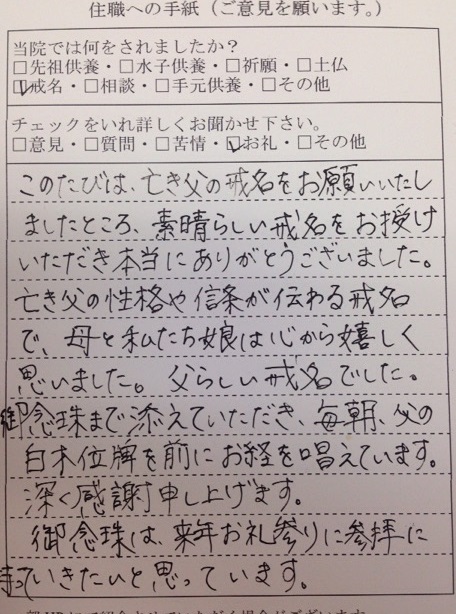 住職への手紙（ご意見を願います。）
当院では何をされましたか？
□先祖供養・□水子供養・□祈願・□土仏
☑戒名・□相談・□手元供養・□その他
チェックをいれ詳しくお聞かせ下さい。
□意見・□質問・□苦情・☑お礼・□その他
このたびは、亡き父の戒名をお願いいたし
ましたところ、素晴らしい戒名をお授け
いただき本当にありがとうございました。
亡き父の性格や信条が伝わる戒名
で、母と私たち娘は心から嬉しく
思いました。父らしい戒名でした。
御念珠まで添えていただき、毎朝、父の
白木位牌を前にお経を唱えています。
深く感謝申し上げます。
御念珠は、来年お礼参りに参拝に
持っていきたいと思っています。